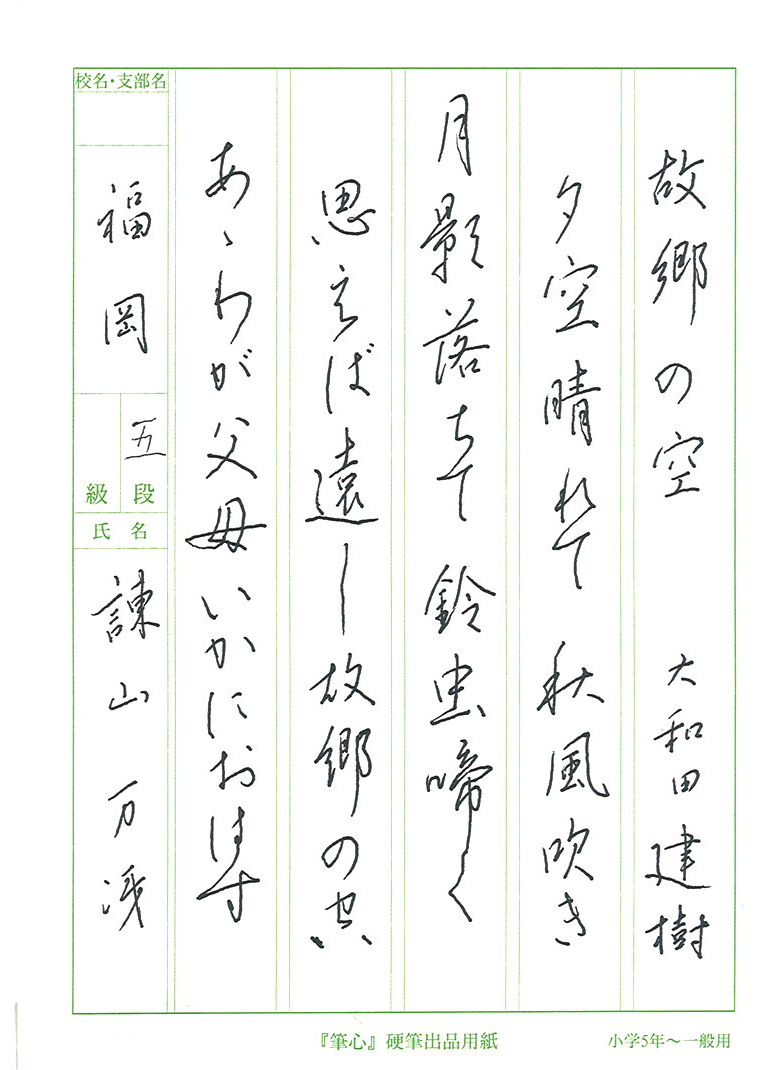 故郷の空　大和田建樹
夕空晴れて　秋風吹き
月影落ちて　鈴虫啼く
思えば遠し　故郷の空
あゝわが父母いかにおはす
校名・支部名
福岡
五
級　段
氏　名
諌山　万
『筆心』硬筆出品用紙
小学5年～一般用